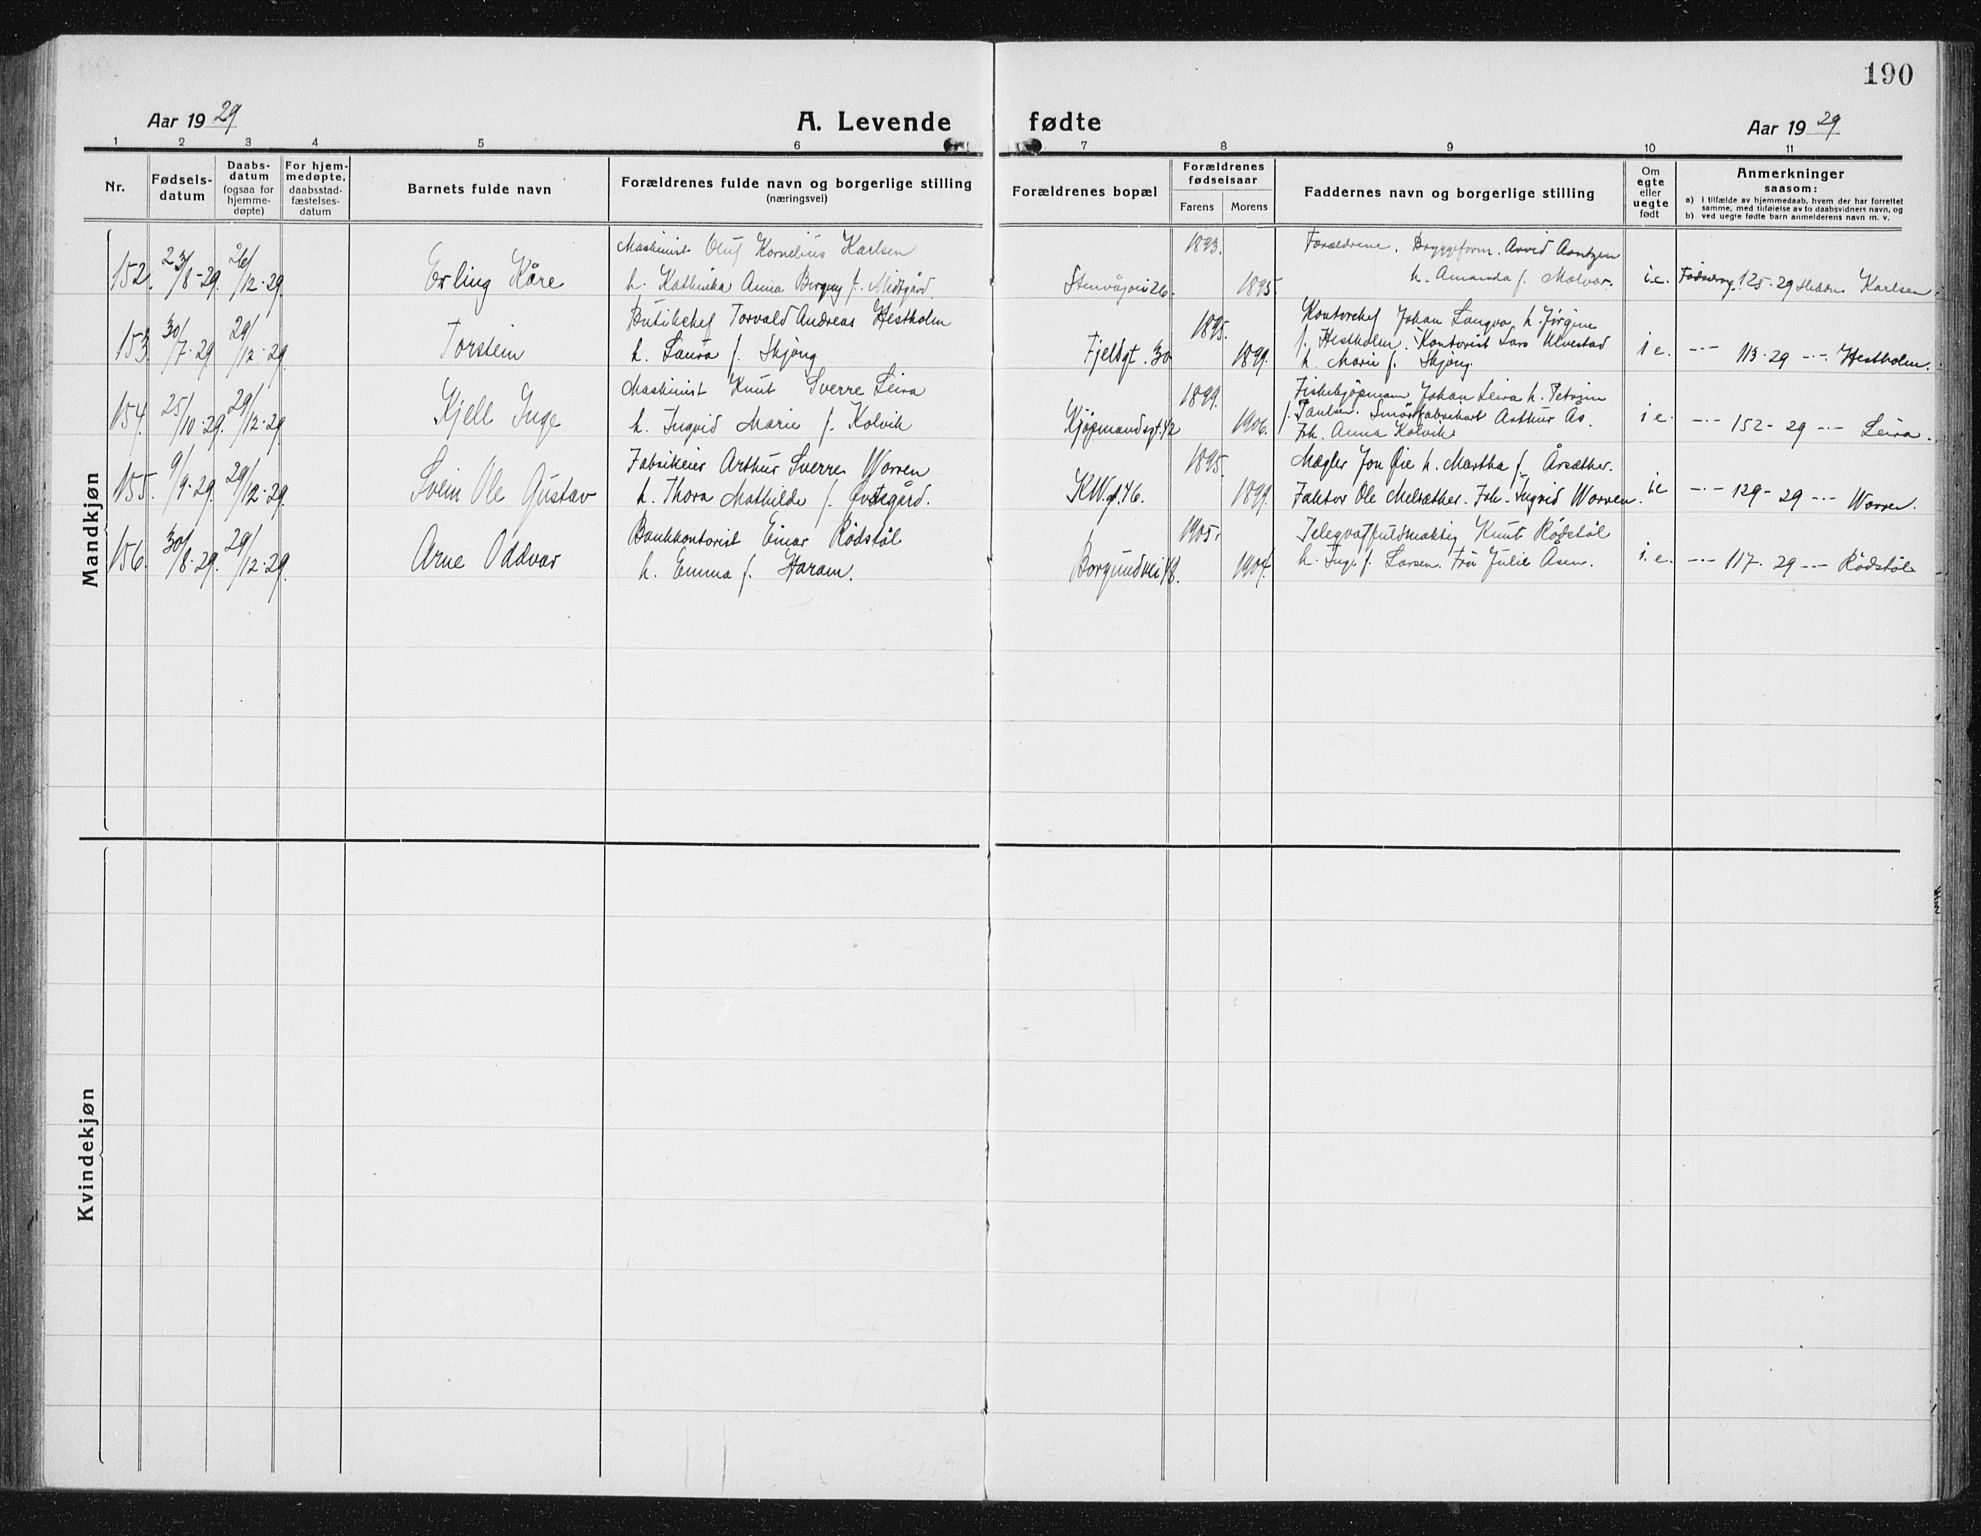 190
Aar 1929
A. Levende fødte
Aar 1929
1 2 3 4 5 6 7 8 9 10 11
Nr.
Fødsels-
datum
Daabs-
datum
(ogsaa for
hjemme-
døpte)
For hjem-
medøpte,
daabsstad-
fæstelses-
datum
Barnets fulde navn
Forældrenes fulde navn og borgerlige stilling
(næringsvei)
Forældrenes bopæl
Forældrenes
fødselsaar
Farens Morens
Faddernes navn og borgerlige stilling
Om
egte
eller
uegte
født
Anmerkninger
saasom:
a) i tilfælde av hjemmedaab, hvem der har forrettet
samme, med tilføielse av to daabsvidners navn, og
b) ved uegte fødte barn anmelderens navn m. v.
Mandkjøn
152. 23/8-29. 26/12-29. Erling Kåre
Maskinist Oluf Kornelius Karlsen
h. Kathinka Anna Birging f. Midtgård.
Stenvågvei 26. 1893. 1895
Forældrene. Bryggeform. Arvid Arntzen
h. Amanda f. Molvær.
i.e. 125-29 Karlsen
153. 30/7-29. 29/12-29. Torstein
Butikchef Torvald Andreas Hestholm
h. Laura f. Skjong
Fjeldgt. 30 1895. 1899.
Kontorchef Johan Langva h. Jørgine
f. Hestholm. Kontorist Lars Ulvestad
h. Marie f. Skjong.
i e. -"- 113-29 -"- Hestholm.
154. 25/10-29. 29/12-29. Kjell Inge
Maskinist Knut Sverre Leira
h. Ingvid Marie f. Kolvik
Kjøpmandsgt. 42 1899. 1906.
Fiskekjøpmann Johan Leira h. Petrine
f. Paulsen. Smørfabrikant Arthur As.
Frk. Anna Kolvik
i e. -"- 152-29 -"- Leira.
155. 9/9-29. 29/12-29. Svein Ole Gustav
Fabrikeier Arthur Sverre Worren
h. Thora Mathilde f. Øvstegård.
K.W.gt. 46. 1895. 1899.
Mægler Jon Øie h. Martha f. Årsæther.
Faktor Ole Melsæther. Frk. Ingrid Worren.
i.e -"- 129-29 -"- Worren.
156. 30/8-29. 29/12-29. Arne Oddvar
Bankkontorist Einar Rødstøl
h. Emma f. Haram.
Borgundvei 48. 1905. 1904.
Telegraffuldmektig Knut Rødstøl
h. Inga f. Larsen. Fru Julie Åsen.
i. e. -"- 117-29 -"- Rødstøl
Kvindekjøn